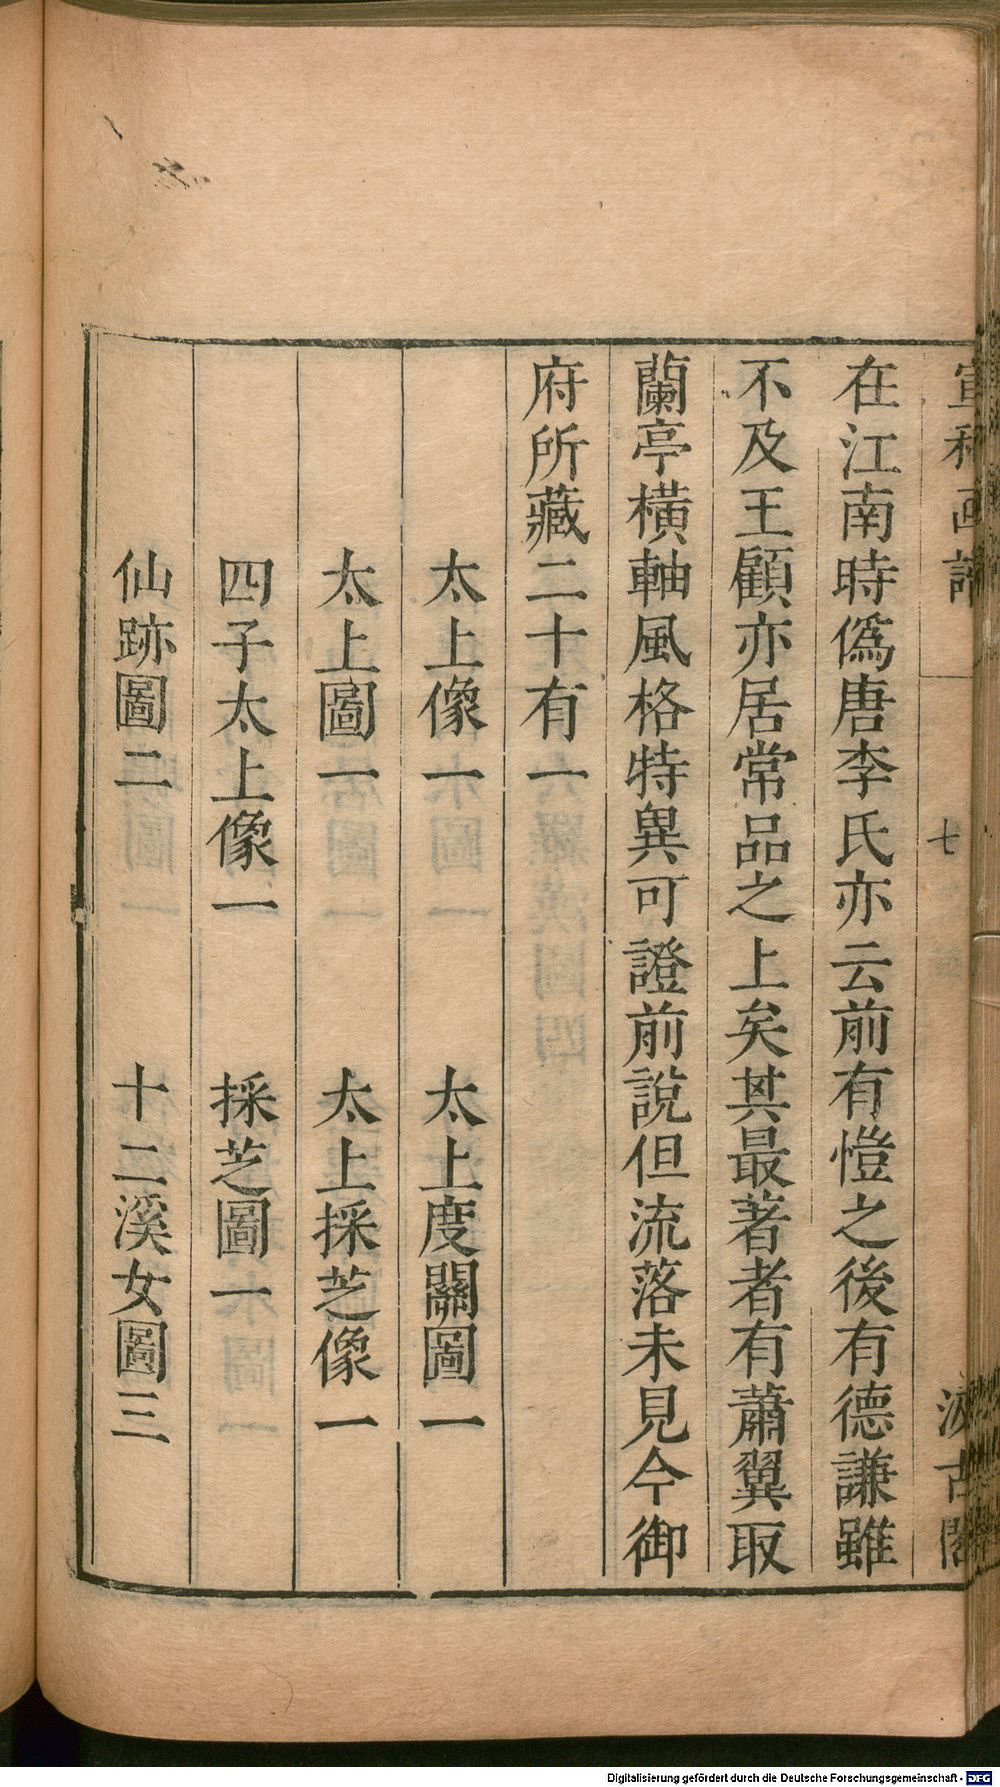 宣和画譜 七 汲古閣
在江南時僞唐李氏亦云前有愷之後有德謙雖
不及王顧亦居常品之上矣其最著者有蕭翼取
蘭亭橫軸風格特異可證前說但流落未見今御
府所藏二十有一
太上像一 太上度關圖一
太上圖一 太上採芝像一
四子太上像一 採芝圖一
仙跡圖二 十二溪女圖三
Digitalisierung gefördert durch die Deutsche Forschungsgemeinschaft - DFG